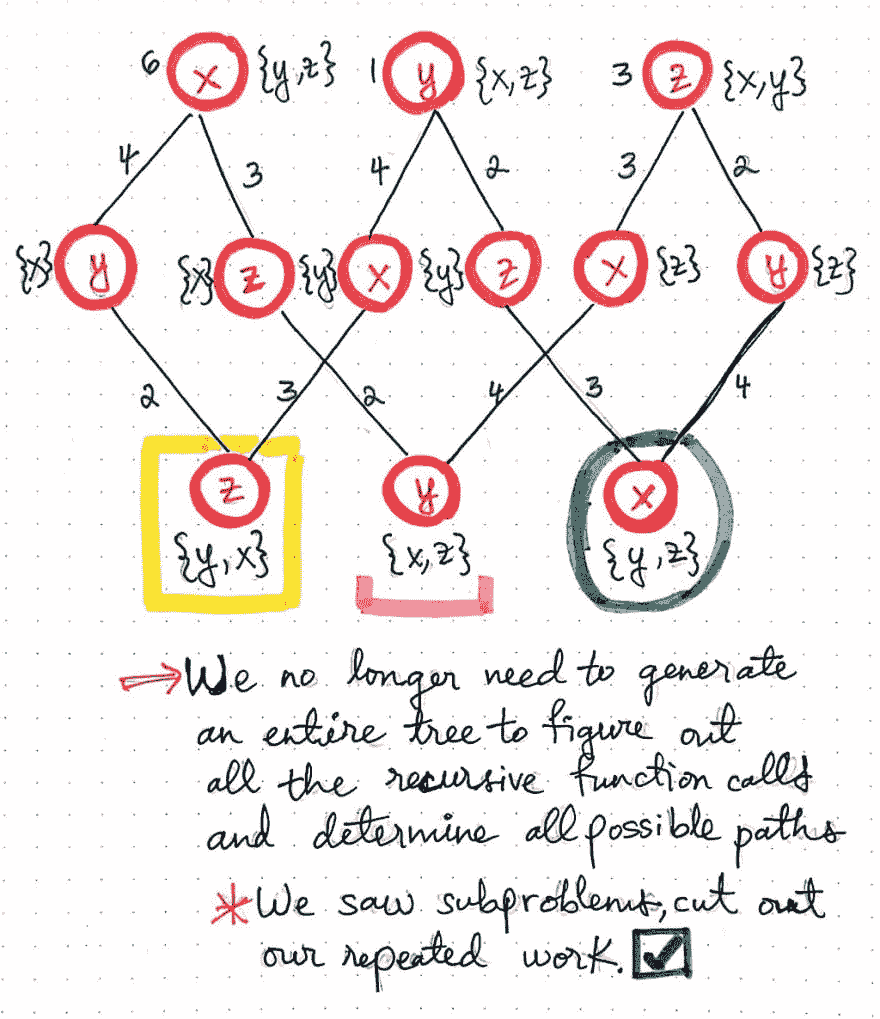 6 x {y,z} 1 y {x,z} 3 z {x,y}
4 3 4 2 3 2
{x} y {x} z {y} x {y} z x {z} y {z}
2 3 2 4 3 4
z y x
{y,x} {x,z} {y,z}
⇒ We no longer need to generate
an entire tree to figure out
all the recursive function calls
and determine all possible paths
* We saw subproblems, cut out
our repeated work. ☑